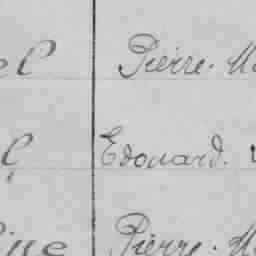 el Pierre. M
l Edouard.
ine Pierre. M